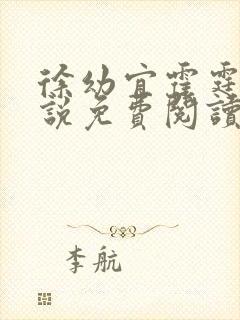 徐幼宜霍霆
說免費閱讀
李航